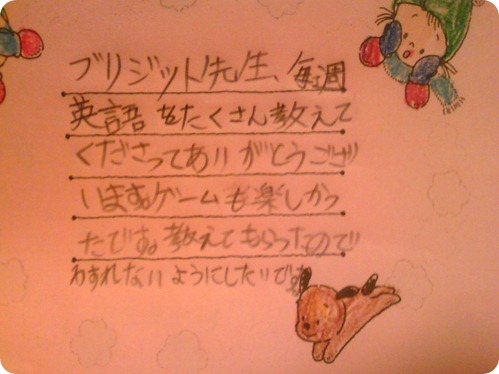 ブリジット先生、毎週
英語をたくさん教えて
くださってありがとうござ
います。ゲームも楽しかっ
たです。教えてもらったので
わすれないようにしたいです。